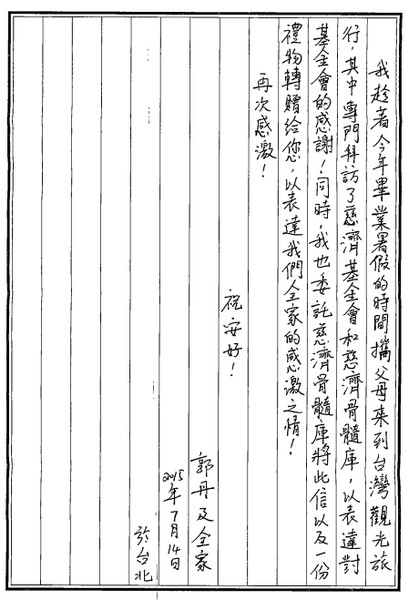 我趁着今年畢業暑假的時間,攜父母來到台灣觀光旅
行,其中專門拜訪了慈濟基金會和慈濟骨髓庫,以表達對
基金會的感謝!同時,我也委託慈濟骨髓庫將此信以及一份
禮物轉贈給您,以表達我們全家的感激之情!
再次感激!
祝安好!
郭丹及全家
2015年7月14日
於台北